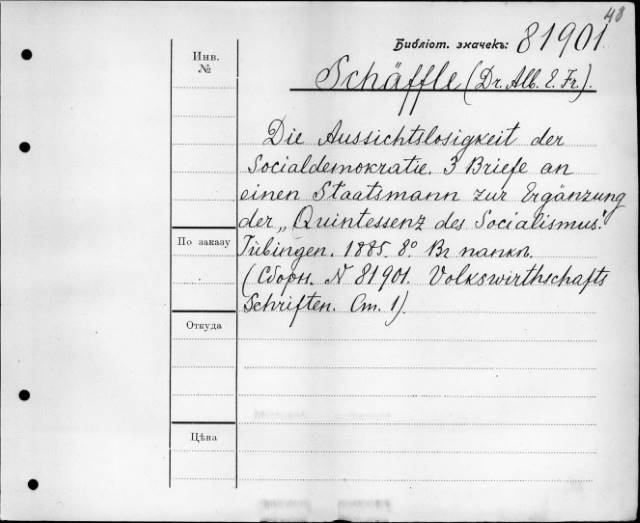 48
Библіот. значекъ: 81901
Инв. №
Schäffle (Dr. Alb. E. Fr.).
Die Aussichtslosigkeit der
Socialdemokratie. 3 Briefe an
einen Staatsmann zur Ergänzung
der „Quintessenz des Socialismus".
По заказу
Tübingen. 1885. 8° Въ папкѣ.
(Сборн. N 81901. Volkswirthschafts
Schriften. Ст. 1).
Откуда
Цѣна